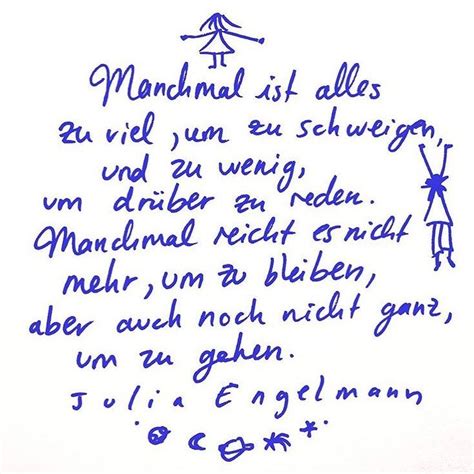 Manchmal ist alles
zu viel, um zu schweigen,
und zu wenig,
um drüber zu reden.
Manchmal reicht es nicht
mehr, um zu bleiben,
aber auch noch nicht ganz,
um zu gehen.
Julia Engelmann